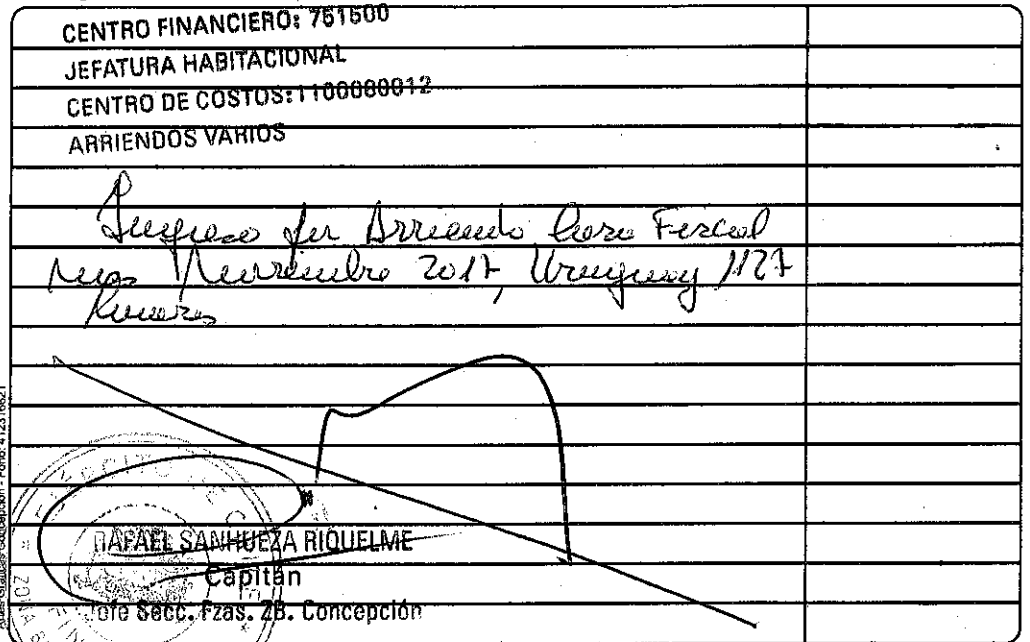 CENTRO FINANCIERO: 751500
JEFATURA HABITACIONAL
CENTRO DE COSTOS: 1100080012
ARRIENDOS VARIOS
Ingreso por Arriendo Casa Fiscal
mes Noviembre 2017, Uruguay 1127
RAFAEL SANHUEZA RIQUELME
Capitán
Jefe Secc. Fzas. ZB. Concepción
EJERCITO DE